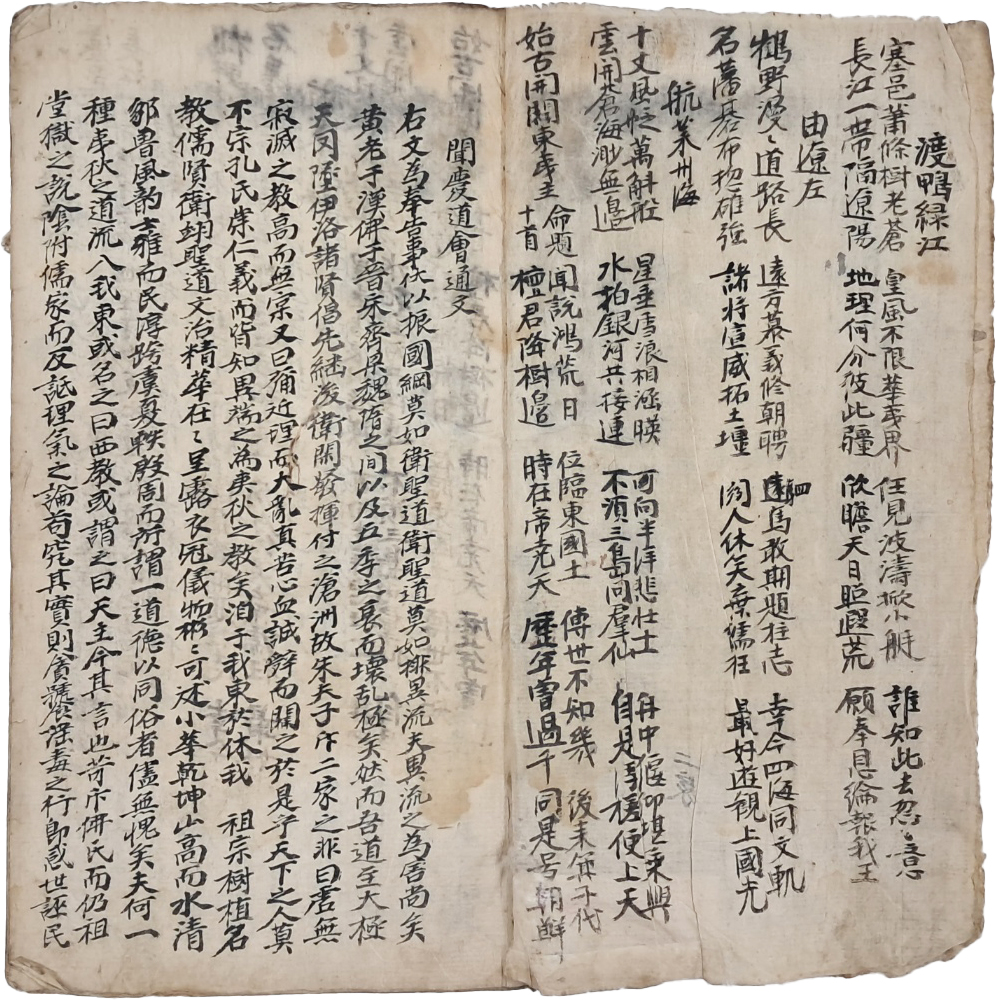 渡鴨綠江
塞邑蕭條樹老蒼 皇風不限華夷界 任見波濤掀小艇 誰知此去忽〻意
長江一帶隔遼陽 地理何分彼此疆 欣瞻天日照遐荒 願奉恩綸報我王
由遼左
鶴野漫〻道路長 遠方慕義修朝聘 駟馬敢期題柱志 幸今四海同文軌
名藩碁布物雄強 諸將宣威拓土壃 関人休笑棄繻狂 最好遊觀上國光
航萊州海
十丈風帆萬斛舡 星垂雪浪相涵暎 可向半洋悲壯士 舟中偃仰堪乘興
雲開蒼海渺無邊 水拍銀河共接連 不須三島問群仙 自是便上天
始古開闢東夷主 命題十首
聞說鴻荒日 位臨東國土 傳世不知幾 後來箕子代
檀君降樹邉 時在帝堯天 歷年曾過千 同是号朝鮮
聞慶道會通文
右文為奉告事伏以振國綱莫如衛聖道衛聖道莫如排異流夫異流之為害尚矣
黃老于漢佛于晉宋齊梁魏隋之間以及五季之衰而壞乱極矣然而吾道至大極
天罔墜伊洛諸賢倡先繼後衛闢發揮付之滄洲故朱夫子斥二家之非曰虛無
寂滅之教高而無宗又曰彌近理而大亂真苦心血誠辭而闢之於是乎天下之人莫
不宗孔氏崇仁義而皆知異端之為夷狄之教矣洎于我東於休我 祖宗樹植名
教儒賢衛翊聖道文治精華在〻呈露衣冠儀物彬〻可述小華乾坤山高而水清
鄒魯風韵士雅而民淳跨虞夏軼殷周而所謂一道德以同俗者儘無愧矣夫何一
種夷狄之道流入我東或名之曰西教或謂之曰天主今其言也苛斥佛氏而仍祖
堂獄之說陰附儒家而反詆理氣之論苟究其實則貪饕淫毒之行即惑世誣民